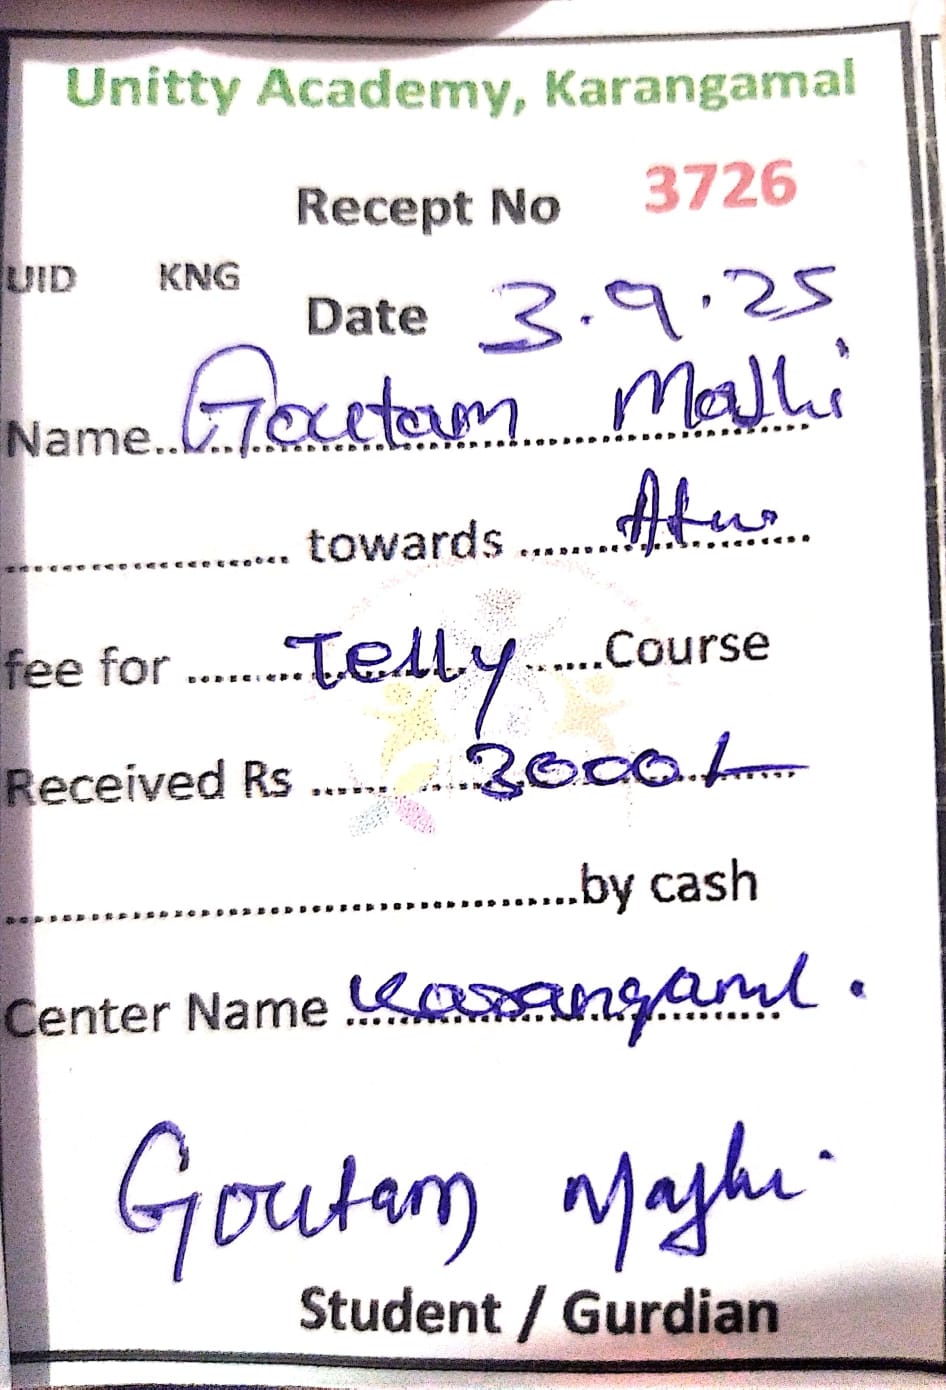 Unitty Academy, Karangamal
Recept No 3726
UID KNG
Date 3.9.25
Name..Goutam Majhi
.................... towards ..........
fee for ........Telly......Course
Received Rs ......3000/-
........................................by cash
Center Name Karangaml.
Goutam Majhi.
Student / Gurdian